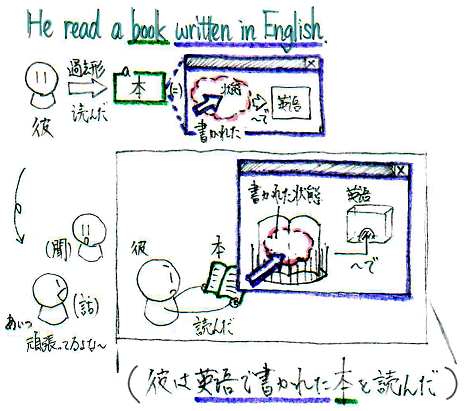 He read a book written in English.
過去形
a
本
(=)
状態
英語
彼
読んだ
書かれた
〜で
書かれた状態
英語
(聞)
彼
本
〜で
(話)
読んだ
あいつ
頑張ってるよな〜
(彼は英語で書かれた本を読んだ)